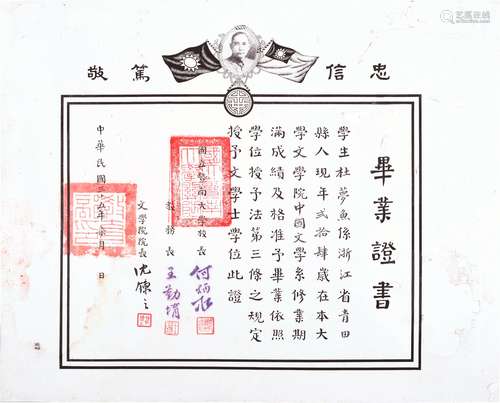 忠信篤敬
畢業證書
學生杜夢魚係浙江省青田
縣人現年貳拾肆歲在本大
學文學院中國文學系修業期
滿成績及格准予畢業依照
學位授予法第三條之規定
授予文學士學位此證
國立暨南大學校長 何炳松
教務長 王勤堉
文學院院長
中華民國三十五年 月 日